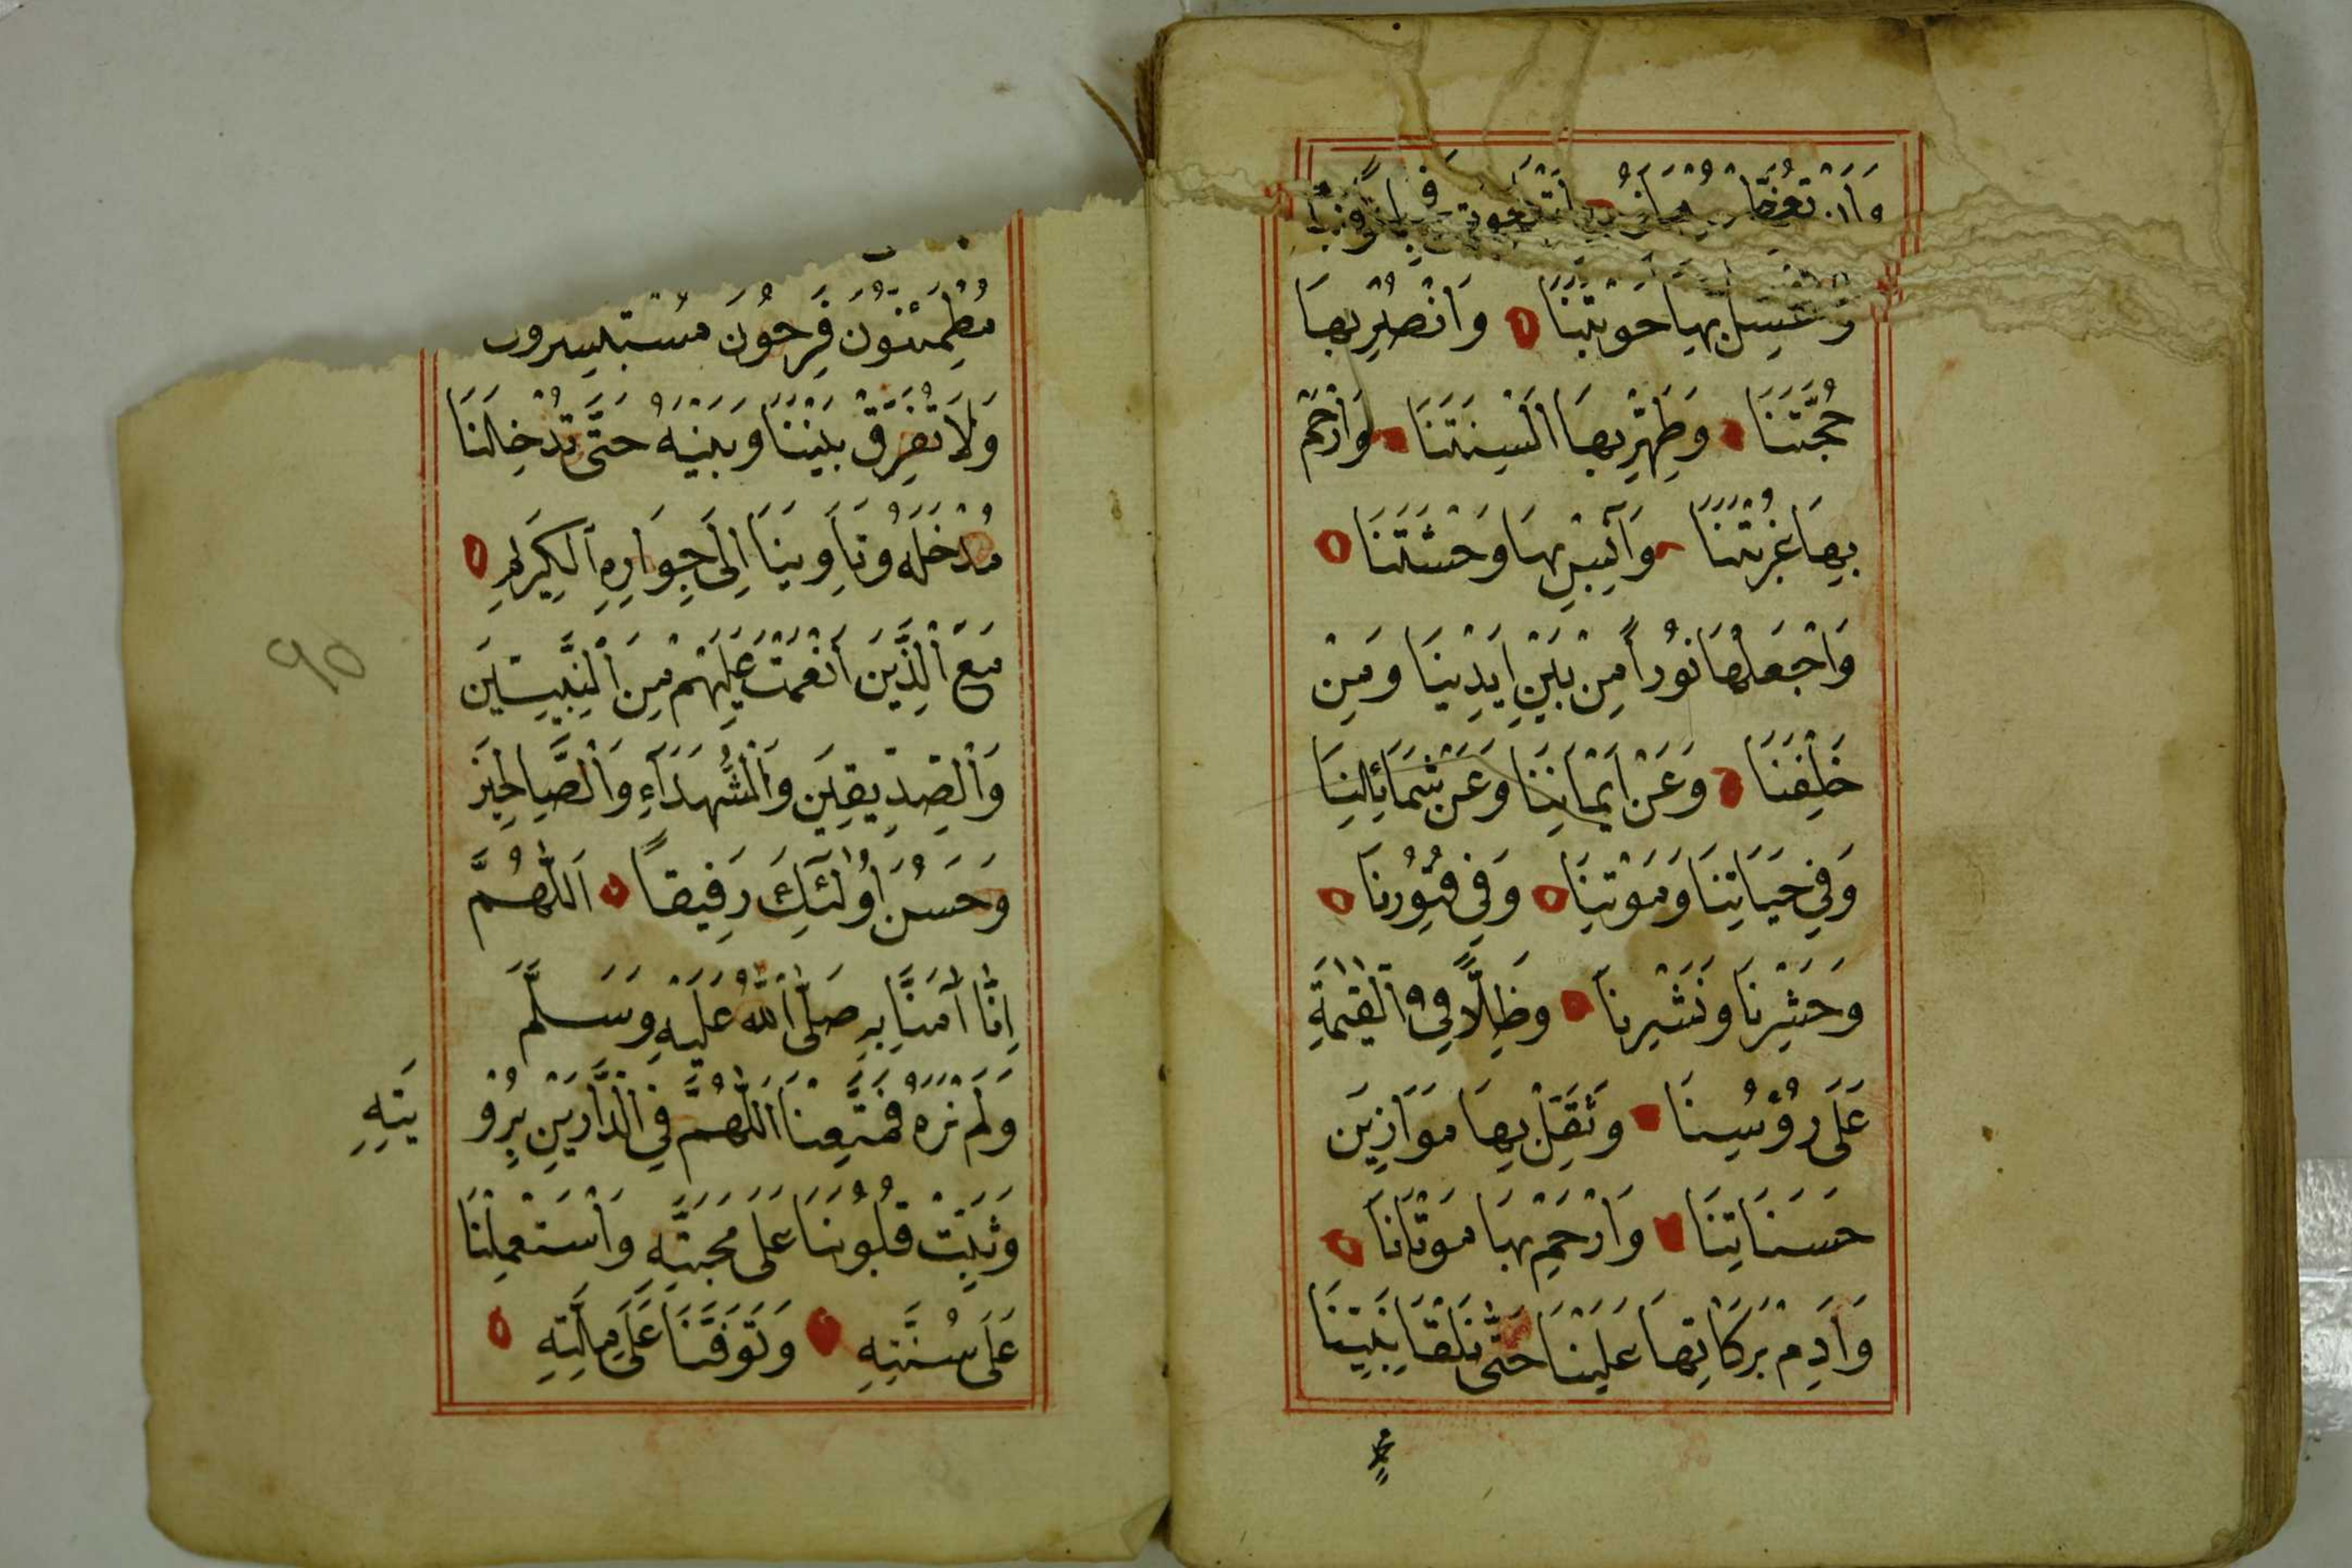 وَاَنْ
وَتَغْسِلَ بِهَا حَوْبَتَنَا ۝ وَانْصُرْ بِهَا
حُجَّتَنَا ۝ وَطَهِّرْ بِهَا اَلْسِنَتَنَا ۝ وَارْحَمْ
بِهَا غُرْبَتَنَا ۝ وَآنِسْ بِهَا وَحْشَتَنَا ۝
وَاجْعَلْهَا نُوْراً مِنْ بَيْنِ اَيْدِيْنَا وَمِنْ
خَلْفِنَا ۝ وَعَنْ اَيْمَانِنَا وَعَنْ شَمَائِلِنَا
وَفِيْ حَيَاتِنَا وَمَوْتِنَا ۝ وَفِيْ قُبُوْرِنَا ۝
وَحَشْرِنَا وَنَشْرِنَا ۝ وَظِلًّا فِي الْقِيٰمَةِ
عَلَى رُؤُسِنَا ۝ وَثَقِّلْ بِهَا مَوَازِيْنَ
حَسَنَاتِنَا ۝ وَارْحَمْ بِهَا مَوْتَانَا ۝
وَاَدِمْ بَرَكَاتِهَا عَلَيْنَا حَتّٰى نَلْقَا نَبِيَّنَا
مُطْمَئِنُّوْنَ فَرِحُوْنَ مُسْتَبْشِرُوْنَ
وَلَا تُفَرِّقْ بَيْنَنَا وَبَيْنَهُ حَتَّى تُدْخِلَنَا
مُدْخَلَهُ وَتَأْوِيَنَا اِلَى جِوَارِهِ الْكَرِيْمِ ۝
مَعَ الَّذِيْنَ اَنْعَمْتَ عَلَيْهِمْ مِنَ النَّبِيّيْنَ
وَالصِّدِّيْقِيْنَ وَالشُّهَدَآءِ وَالصَّالِحِيْنَ
وَحَسُنَ اُولٰئِكَ رَفِيْقاً ۝ اَللّٰهُمَّ
اِنَّا اٰمَنَّا بِهِ صَلَّى اللّٰهُ عَلَيْهِ وَسَلَّمَ
وَلَمْ نَرَهُ فَمَتِّعْنَا اللّٰهُمَّ فِي الدَّارَيْنِ بِرُؤْ
يَتِهِ
وَثَبِّتْ قُلُوْبَنَا عَلَى مَحَبَّتِهِ وَاسْتَعْمِلْنَا
عَلَى سُنَّتِهِ ۝ وَتَوَفَّنَا عَلَى مِلَّتِهِ ۝
٩٥